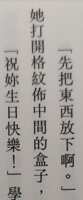 「先把東西放下啊。」
她打開格紋佈中間的盒子，
「祝妳生日快樂！」學